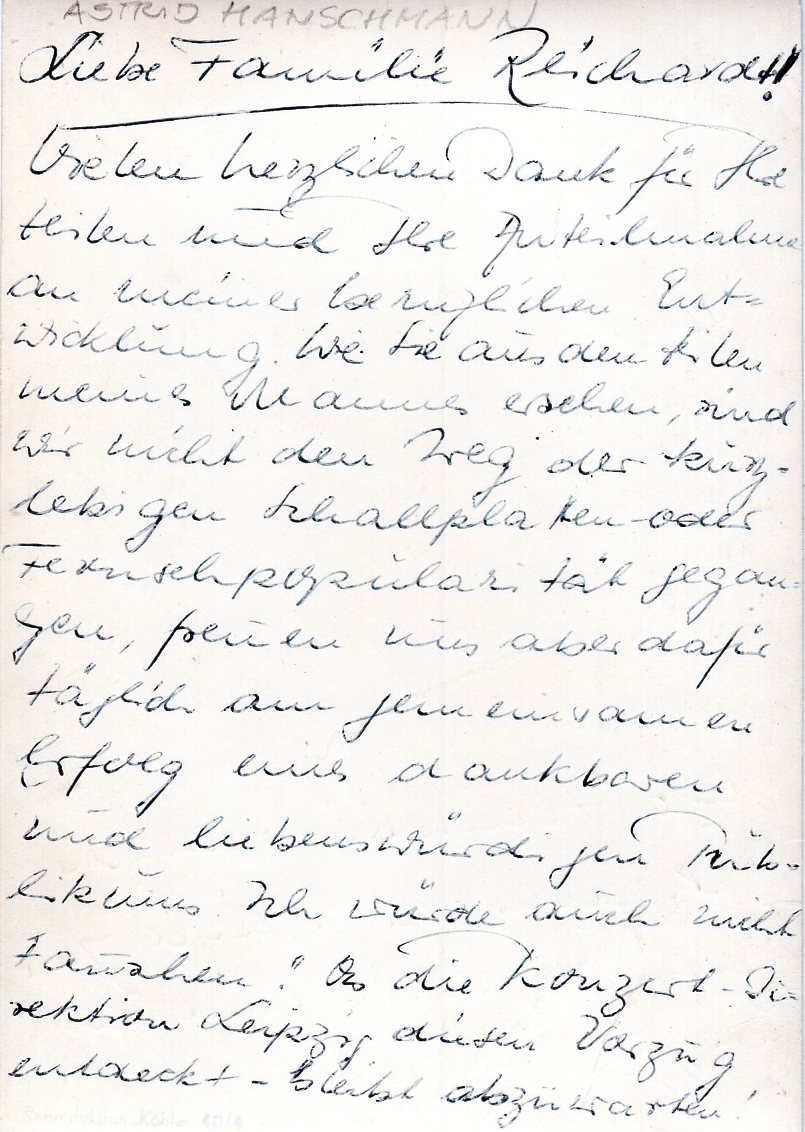 ASTRID HANSCHMANN
Liebe Familie Reichardt!!
Vielen herzlichen Dank für Ihre
Zeilen und Ihre Anteilnahme
an meiner beruflichen Ent=
wicklung. Wie Sie aus den Zeilen
meines Mannes ersehen, sind
wir nicht den Weg der kurz-
lebigen Schallplatten- oder
Fernsehpopularität gegan=
gen, freuen uns aber dafür
täglich am gemeinsamen
Erfolg eines dankbaren
und liebenswürdigen Pub=
likums. Ich würde auch nicht
tauschen! Ob die Konzert-Di=
rektion Leipzig diesen Vorzug
entdeckt - bleibt abzuwarten!
Reproduktion Köhler